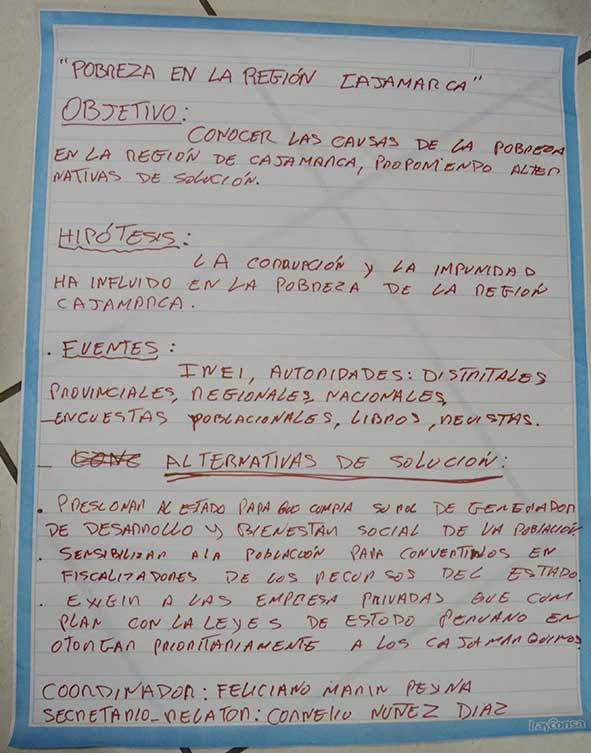 "POBREZA EN LA REGIÓN CAJAMARCA"
OBJETIVO:
CONOCER LAS CAUSAS DE LA POBREZA
EN LA REGIÓN DE CAJAMARCA, PROPONIENDO ALTER
NATIVAS DE SOLUCIÓN.
HIPÓTESIS:
LA CORRUPCIÓN Y LA IMPUNIDAD
HA INFLUIDO EN LA POBREZA DE LA REGIÓN
CAJAMARCA.
. FUENTES:
INEI, AUTORIDADES: DISTRITALES
PROVINCIALES, REGIONALES, NACIONALES,
- ENCUESTAS POBLACIONALES, LIBROS, REVISTAS.
- CONC ALTERNATIVAS DE SOLUCIÓN:
. PRESIONAR AL ESTADO PARA QUE CUMPLA SU ROL DE GENERADOR
DE DESARROLLO Y BIENESTAR SOCIAL DE LA POBLACIÓN
. SENSIBILIZAR A LA POBLACIÓN PARA CONVERTIRLOS EN
FISCALIZADORES DE LOS RECURSOS DEL ESTADO.
. EXIGIR A LAS EMPRESA PRIVADAS QUE CUM
PLAN CON LA LEYES DE ESTODO PERUANO EN
OTORGAR PRIORITARIAMENTE A LOS CAJAMARQUINOS
COORDINADOR: FELICIANO MARIN REYNA
SECRETARIO-RELATOR: CORNELIO NUÑEZ DIAZ
Layconsa